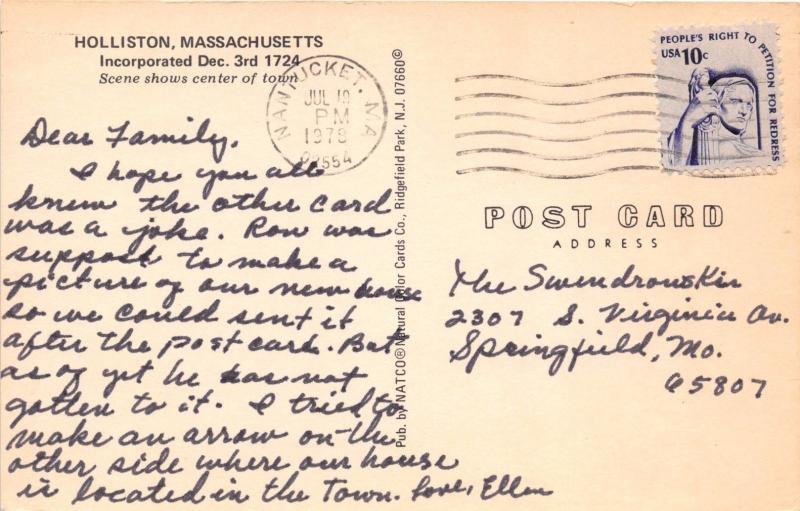 HOLLISTON, MASSACHUSETTS
Incorporated Dec. 3rd 1724
Scene shows center of town
NANTUCKET, MA
JUL 19
PM
1978
02554
PEOPLE'S RIGHT TO PETITION FOR REDRESS
USA 10c
Dear Family,
I hope you all
knew the other card
was a joke. Ron was
suppost to make a
picture of our new house
so we could sent it
after the post card. But
as of yet he has not
gotten to it. I tried to
make an arrow on the
other side where our house
is located in the Town. Love, Ellen
Pub. by NATCO® Natural Color Cards Co., Ridgefield Park, N.J. 07660©
POST CARD
ADDRESS
The Swendrowskis
2307 S. Virginia Av.
Springfield, Mo.
65807